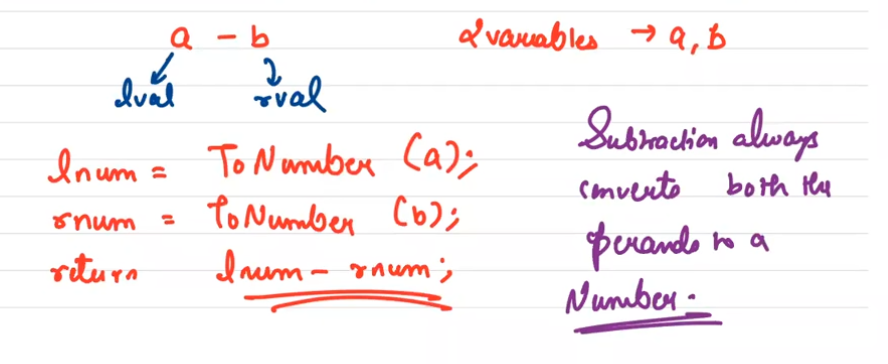 a - b
2 variables → a, b
lval rval
lnum = ToNumber (a);
rnum = ToNumber (b);
return lnum - rnum;
Subtraction always
converts both the
perands to a
Number.